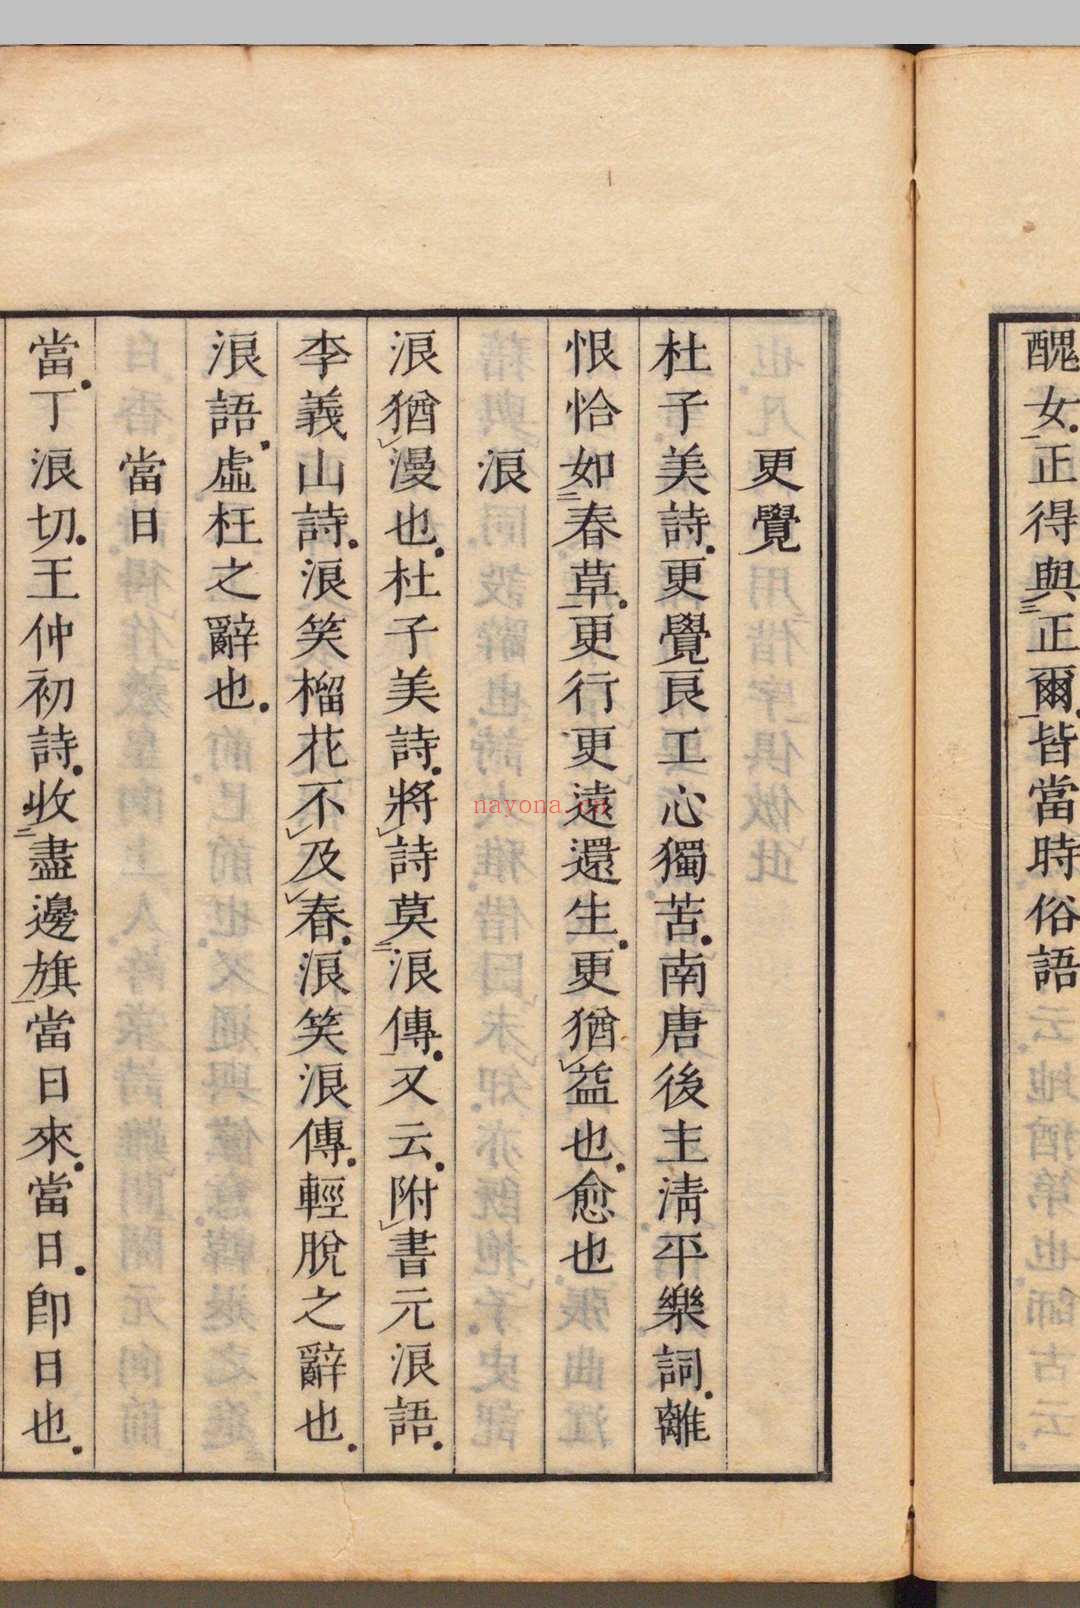 醜女正得與正爾皆當時俗語
更覺
杜子美詩更覺良工心獨苦南唐後主淸平樂詞離
恨恰如春草更行更遠還生更猶益也愈也
浪
浪猶漫也杜子美詩將詩莫浪傳又云附書元浪語
李義山詩浪笑榴花不及春浪笑浪傳輕脫之辭也
浪語虛枉之辭也
當日
當丁浪切王仲初詩收盡邊旗當日來當日卽日也
nayona.cn